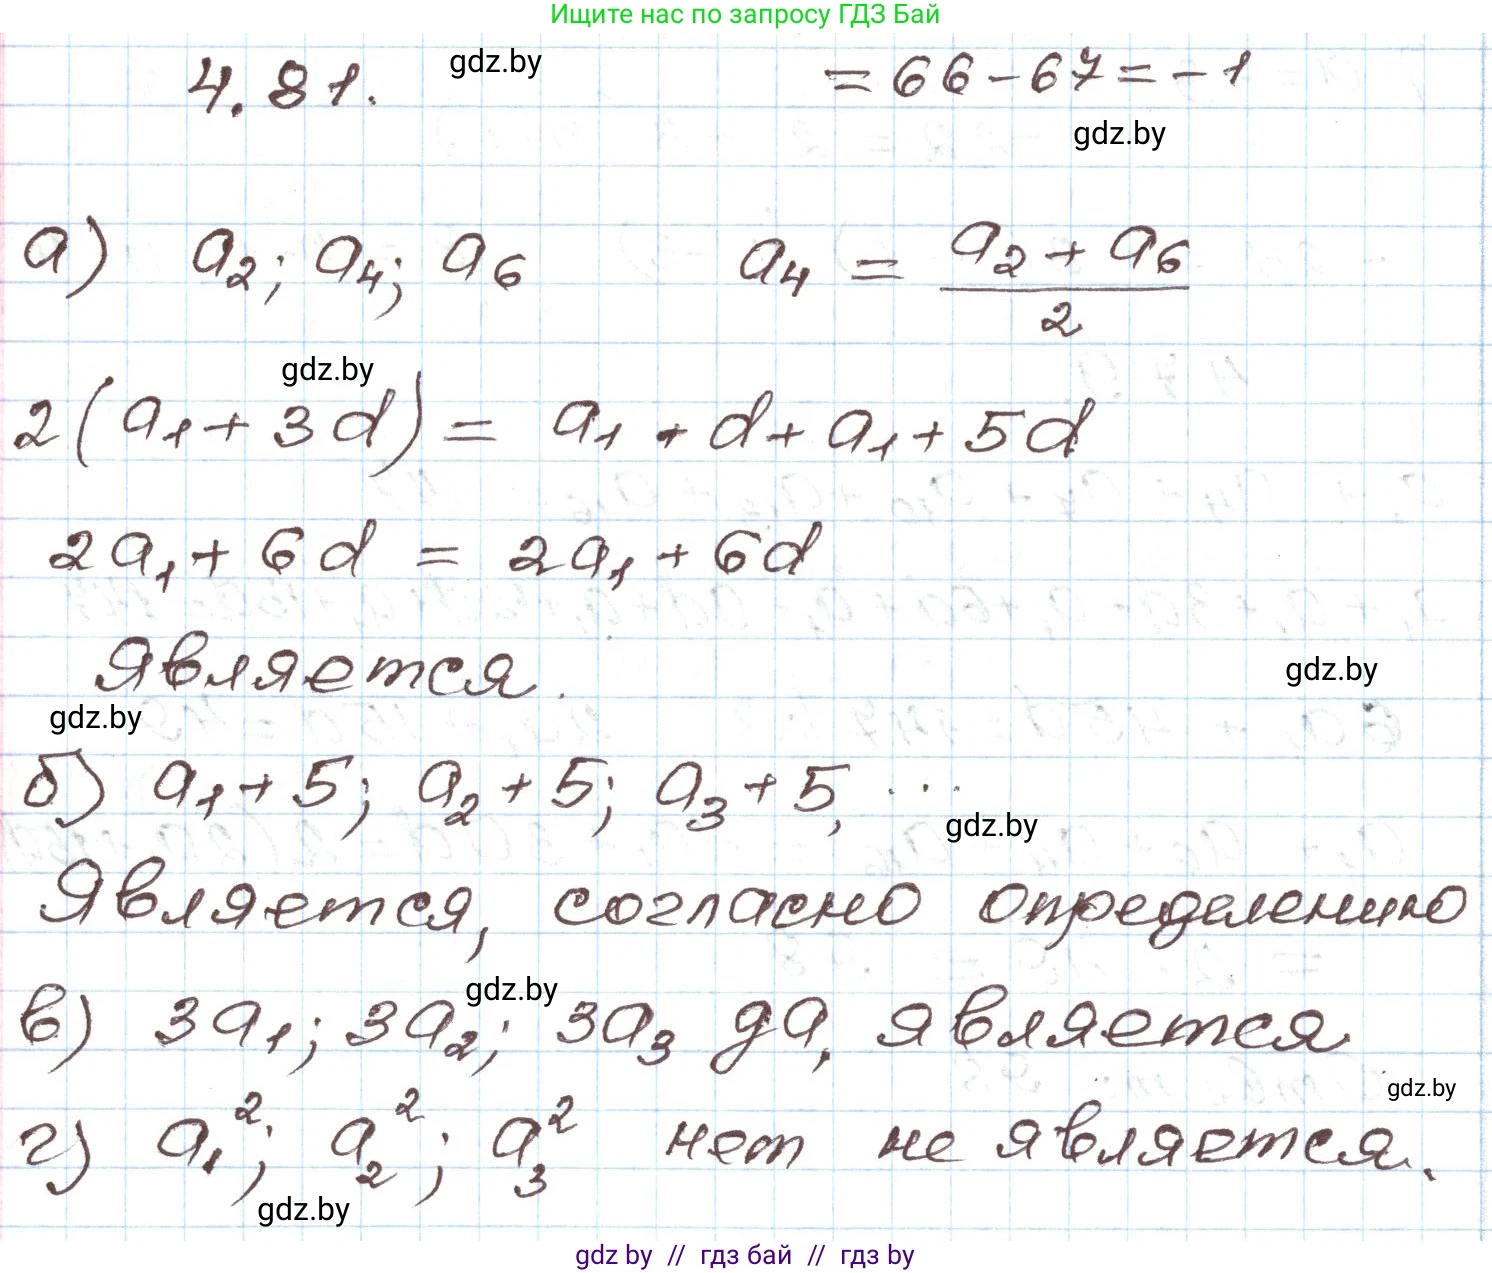 Ищите нас по запросу ГДЗ Бай
4.81. gdz.by = 66 - 67 = -1
gdz.by
а) a₂; a₄; a₆ a₄ = (a₂ + a₆)/2
gdz.by
2(a₁ + 3d) = a₁ + d + a₁ + 5d
2a₁ + 6d = 2a₁ + 6d
является.
gdz.by
gdz.by
б) a₁ + 5; a₂ + 5; a₃ + 5, ...
gdz.by
Является, согласно определению
gdz.by
в) 3a₁; 3a₂; 3a₃ да, является
gdz.by
г) a₁²; a₂²; a₃² нет не является.
gdz.by
gdz by // гдз бай // гдз by